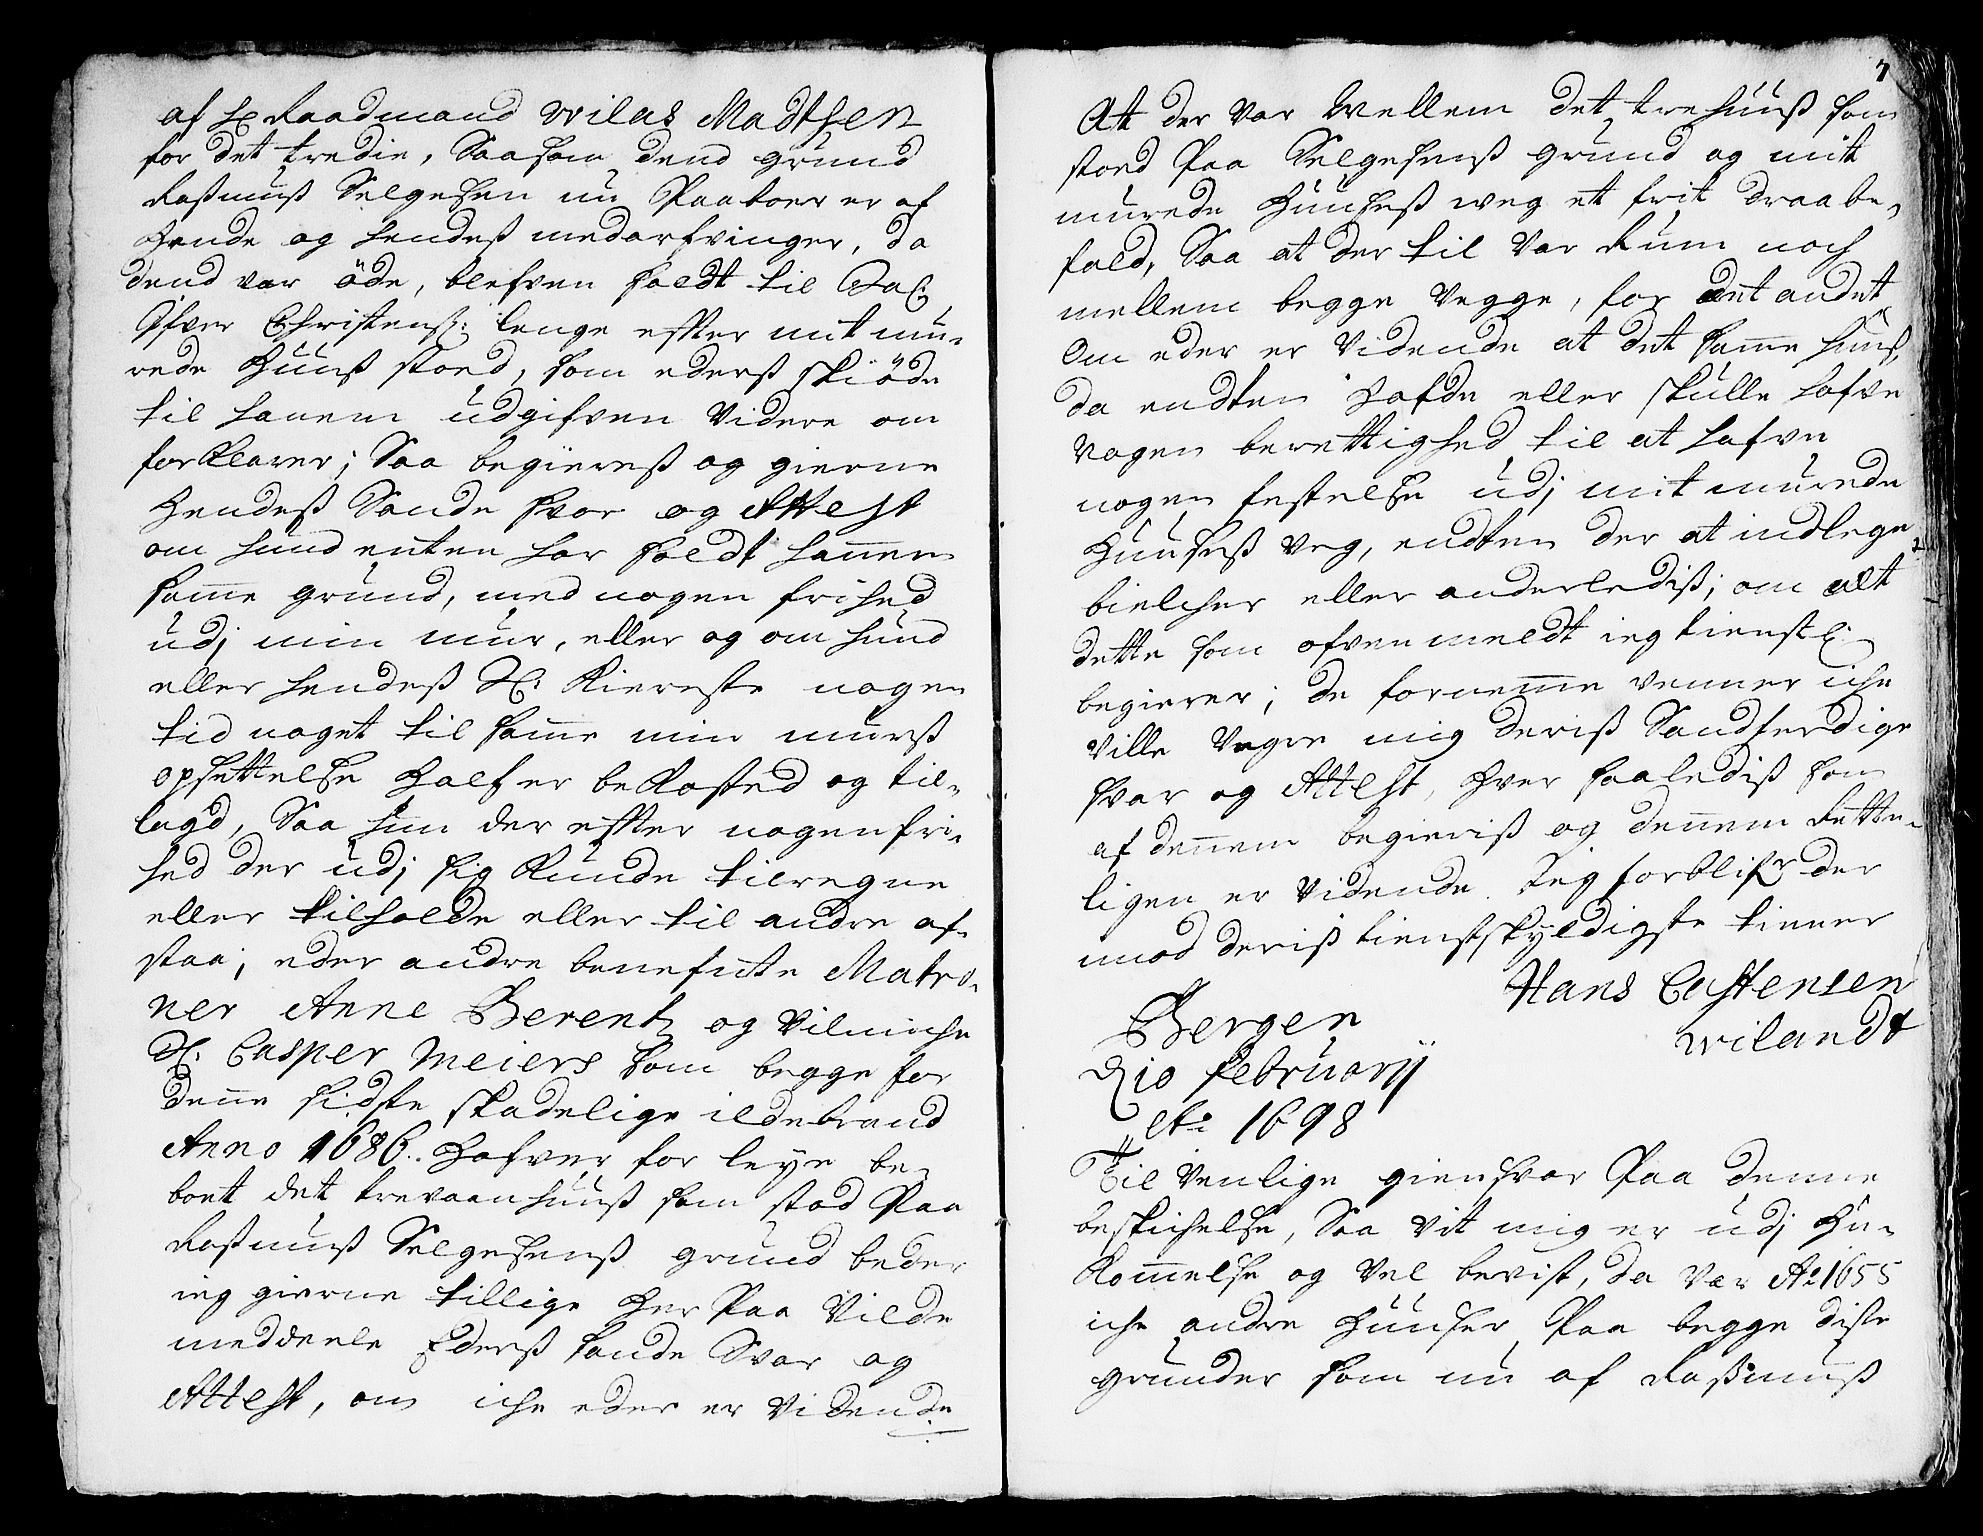 af Hr Raadmand Wilas Madtsen
for det tredie, Saasom dend grund
Rasmuss Selgesen nu Paaboer er af
Hende og hendes medarfvinger, da
dend var öde, blefven soldt til Sal:
Ifver Christens: lenge efter mit mu-
rede Huuss stoed, som ederss skiöde
til hannem udgifven videre om
forklarer; Saa begieress og gierne
Hendess Sande svar og Attest
om hund enten har soldt hannem
samme grund, med nogen frihed
udj min mur, eller og om hund
eller hendess Sl: Kiereste nogen
tid noget til samme min murss
opsettelse Halfver bekosted og til-
lagd, Saa hun der efter nogen fri-
hed der udj sig kunde tilregne
eller tilholde eller til andre af-
staa; eder andre benefnte Matro-
ner Anne Berentz og Vilmiche
Sl: Casper Meiers som begge for
denne sidste skadelige ildebrand
Anno 1686. Hafver for leye be-
boet det trevaan huuss som stod Paa
Rasmuss Selgesenss grund beder
ieg gierne tillige Her Paa Vilde
meddeele Ederss sande Svar og
Attest, om iche eder er vidende
7
Att der var Mellem det trehuuss som
stoed Paa Selgesenss grund og mit
murede Huusess weg et frit draabe-
fald, Saa at der til var Rum noch
mellem begge Vegge, for det andet
Om eder er Vidende at det samme huus,
da endten Hafde eller skulle hafve
nogen berettighed til at hafve
nogen festelse udj mit murede
Huusess Veg, endten der at indlege
bielcher eller anderlediss; om alt
dette som ofvenmeldt ieg tienstl:
begierer; de fornemme venner iche
ville Vegre mig deriss Sandferdige
svar og Attest, Hver saalediss som
af dennem begieriss og dennem Rette-
ligen er Vidende. Jeg forblifr der
imod deriss tienstskyldigste tiener
Hans Castensen
Wilandt
Bergen
d 10 februarij
Ao 1698
Til Venlige giensvar Paa denne
beskichelse, Saa vit mig er udj Hu-
kommelse og Vel bevist, da var Ao 1655
iche andre Huuser Paa begge disse
grunder som nu af Rasmuss